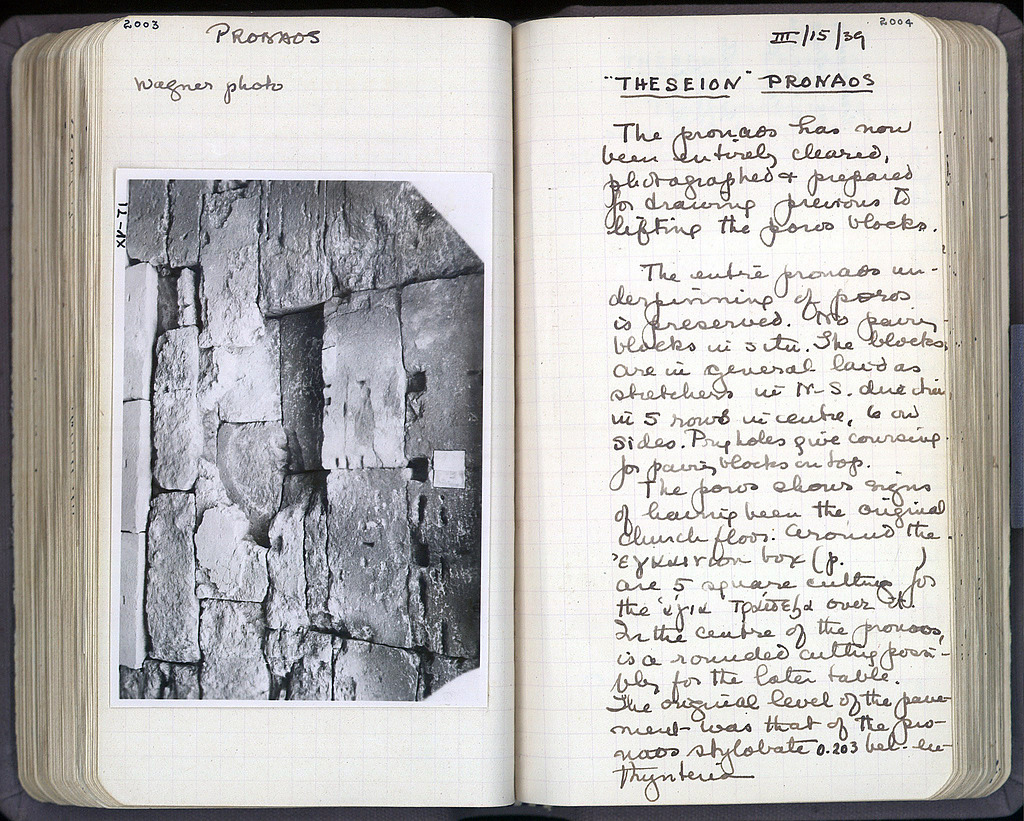 2003
PRONAOS
Wagner photo
XV-71
2004
III/15/39
"THESEION" PRONAOS
The pronaos has now
been entirely cleared,
photographed & prepared
for drawing previous to
lifting the poros blocks.
The entire pronaos un-
derpinning of poros
is preserved. No paving
blocks in situ. The blocks
are in general laid as
stretchers in N-S. direction
in 5 rows in centre, 6 on
sides. Pry holes give coursing
for paving blocks on top.
The poros shows signs
of having been the original
church floor. Around the
box (p. )
are 5 square cuttings for
the over it.
In the centre of the pronaos,
is a rounded cutting possi-
bly for the later table.
The original level of the pave-
ment was that of the pro-
naos stylobate 0.203 bel. eu-
thynteria